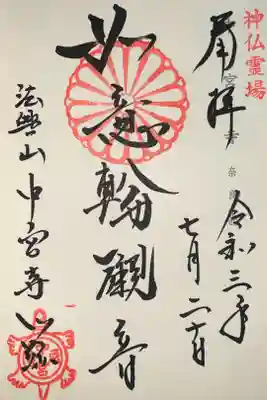 神仏霊場
奉拝
令和三年
七月二十日
如意輪観音
法興山中宮寺門跡